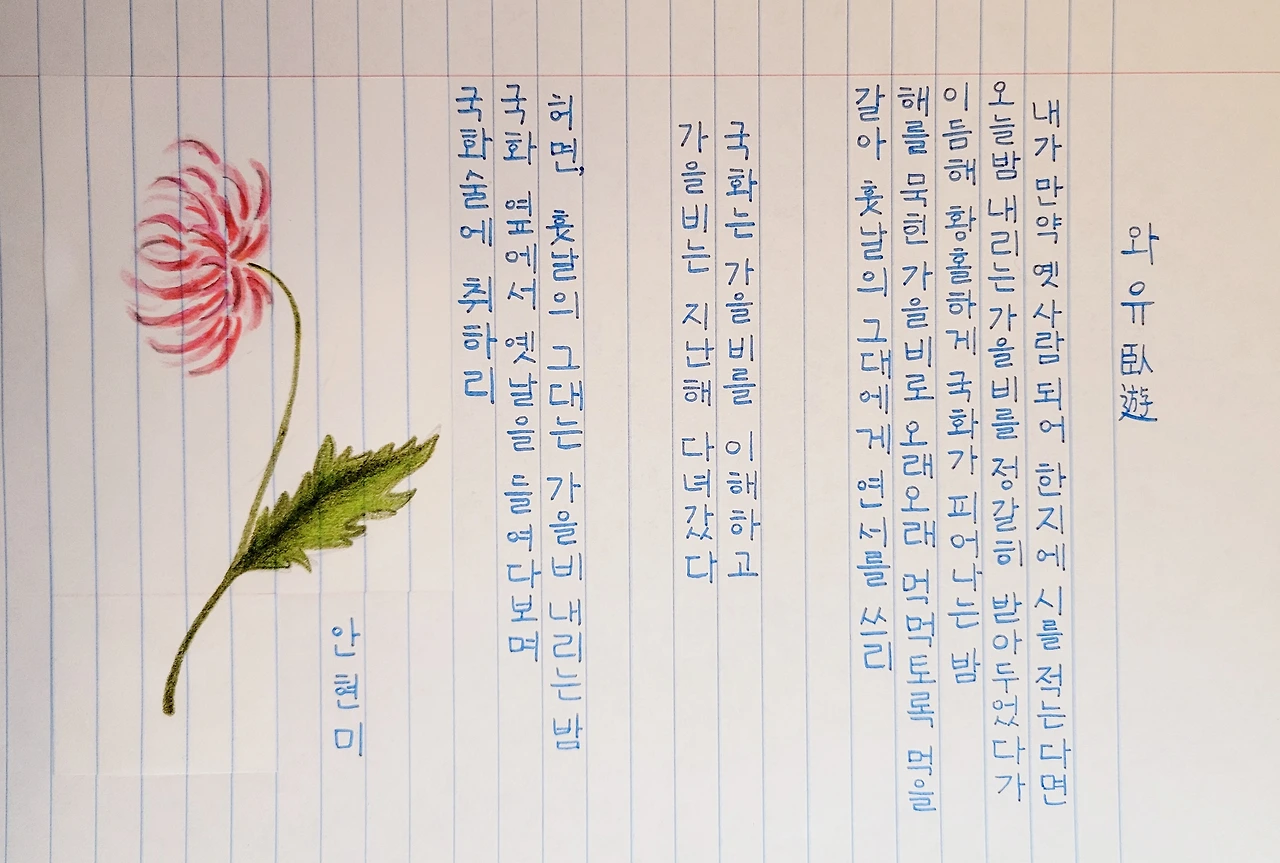 와유 臥遊
내가 만약 옛사람 되어 한지에 시를 적는다면
오늘밤 내리는 가을비를 정갈히 받아두었다가
이듬해 황홀하게 국화가 피어나는 밤
해를 묵힌 가을비로 오래오래 먹먹토록 먹을
갈아 훗날의 그대에게 연서를 쓰리
국화는 가을비를 이해하고
가을비는 지난해 다녀갔다
허면, 훗날의 그대는 가을비 내리는 밤
국화 옆에서 옛날을 들여다보며
국화술에 취하리
안현미